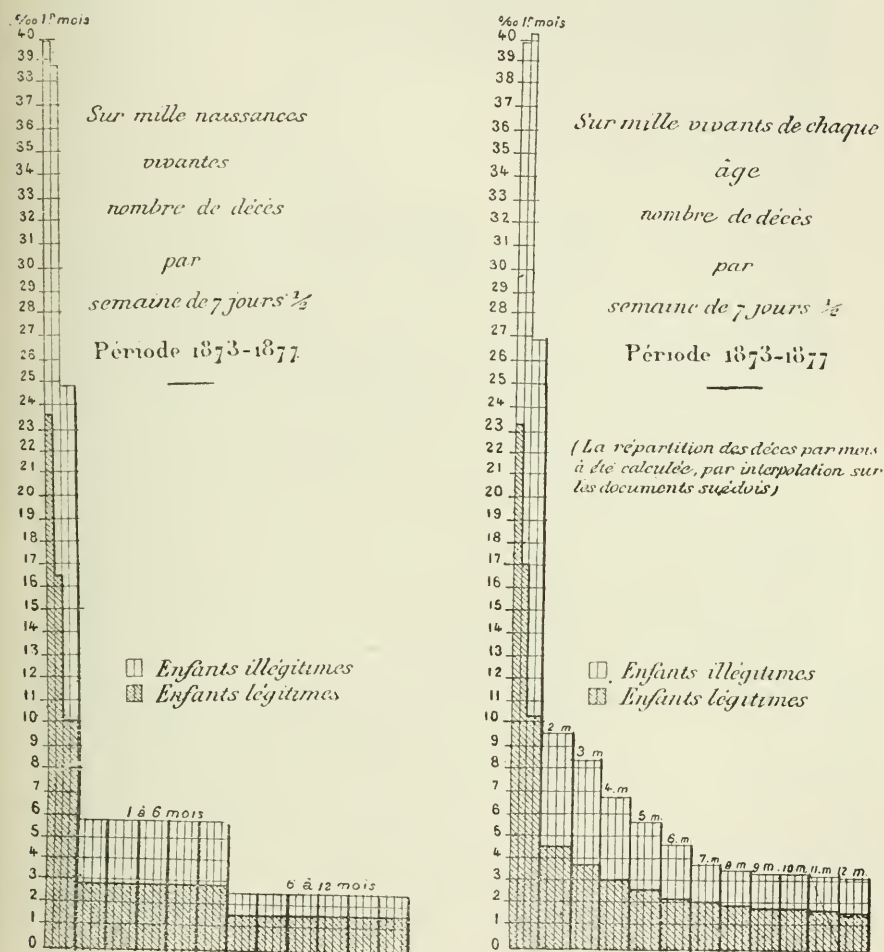 ‰ 1.r mois
40
39
33
37
36
35
34
33
32
31
30
29
28
27
26
25
24
23
22
21
20
19
18
17
16
15
14
13
12
11
10
9
8
7
6
5
4
3
2
1
0
Sur mille naissances
vivantes
nombre de décès
par
semaine de 7 jours ½
Période 1873-1877
Enfants illégitimes
Enfants légitimes
1 à 6 mois
6 à 12 mois
‰ 1.r mois
40
39
38
37
36
35
34
33
32
31
30
29
28
27
26
25
24
23
22
21
20
19
18
17
16
15
14
13
12
11
10
9
8
7
6
5
4
3
2
1
0
Sur mille vivants de chaque
âge
nombre de décès
par
semaine de 7 jours ½
Période 1873-1877
(La répartition des décès par mois
à été calculée, par interpolation sur
les documents suédois)
Enfants illégitimes
Enfants légitimes
2 m
3 m
4. m
5 m.
6. m
7. m
8 m
9 m.
10 m
11. m
12 m.